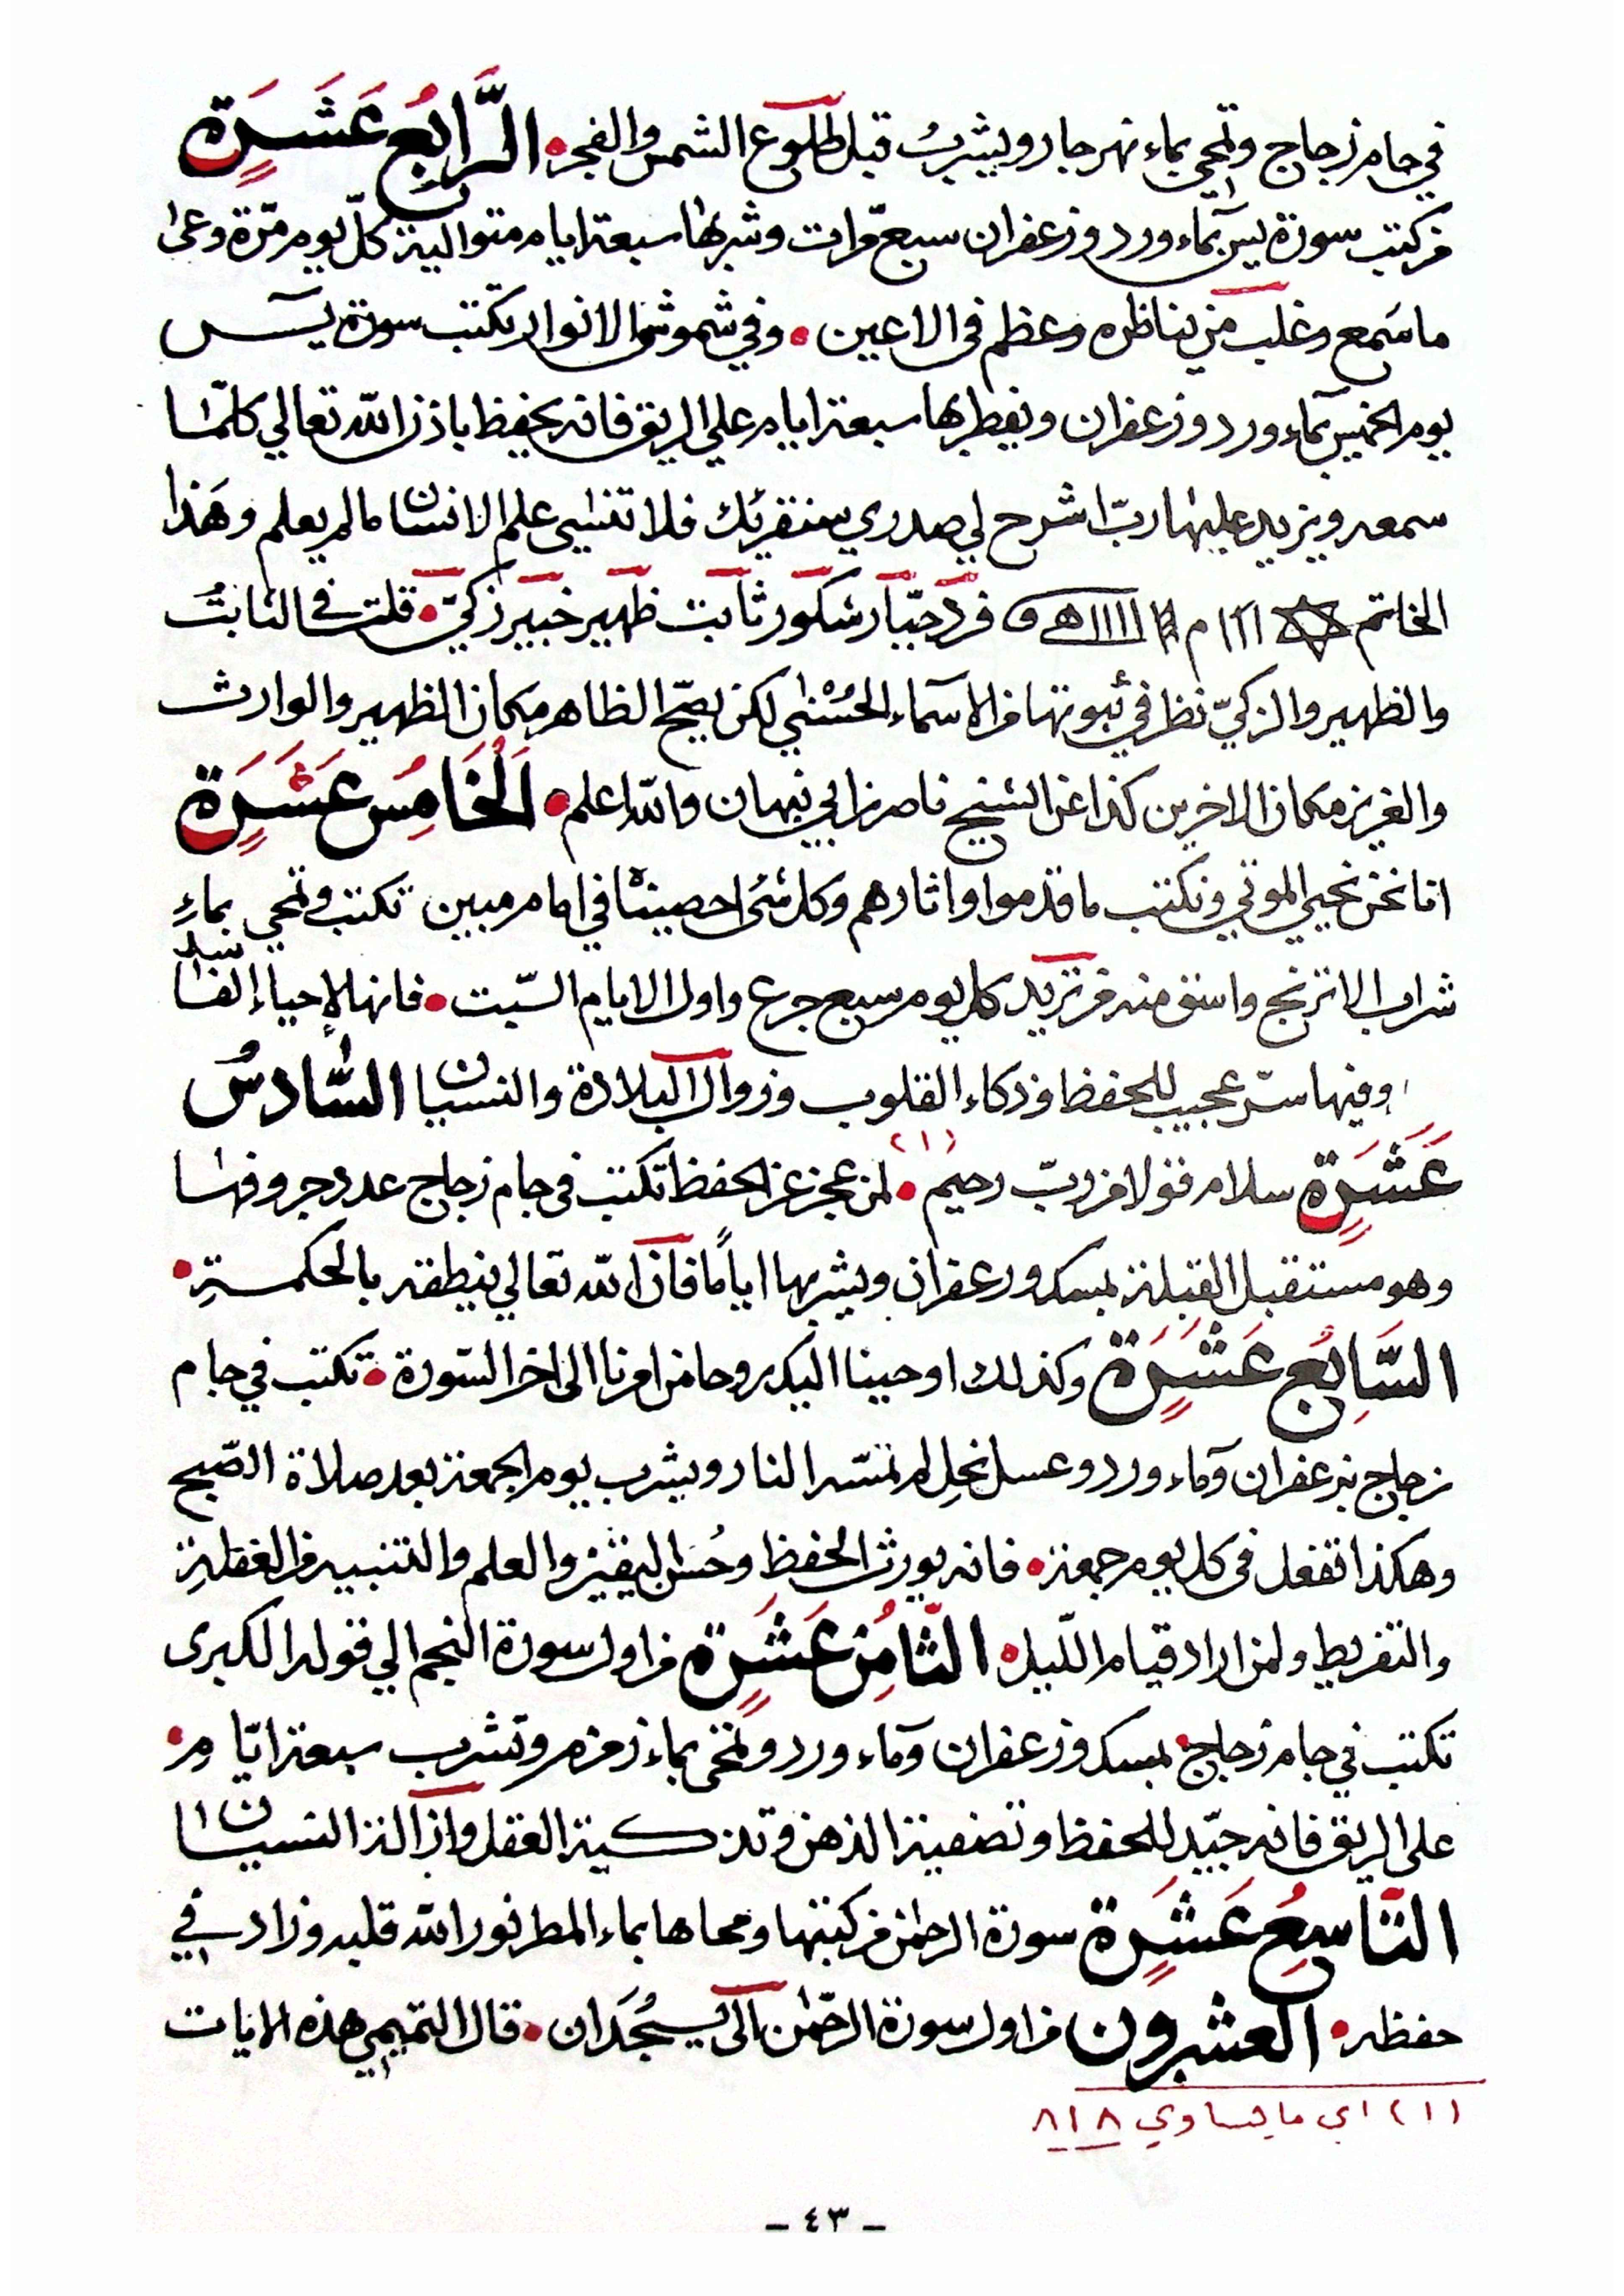 في جام زجاج وتمحى بماء نهر جار ويشرب قبل طلوع الشمس والفجر • الرَّابعُ عَشَرَة
من كتب سورة يس بماء ورد وزعفران سبع مرّات وشربها سبعة ايام متوالية كلّ يوم مرّة وعى
ما سَمع وغلب من يناظره وعظم في الاعين • وفي شموش الانوار تكتب سورة يسٓ
يوم الخميس بماء ورد وزعفران ويفطر بها سبعة ايام على الريق فانه يحفظ باذن الله تعالى كلّما
سمعه ويزيد عليها ربّ اشرح لي صدري سنقرئك فلا تنسى علم الانسان ما لم يعلم وهَذا
الخاتم فرد جبّار شكور ثابت ظهير خبير زكيّ • قلت في الثابت
والظهير والزكيّ نظر في ثبوتها من الاسماء الحُسْنى لكن يصحّ الظاهر مكان الظهير والوارث
والعزيز مكان الاخرين كذا عن الشيخ ناصر بن ابي نبهان والله اعلم • اَلْخَامِسُ عَشَرَة
انا نحن نحيي الموتى ونكتب ما قدموا واثارهم وكل شئ احصيناه في امام مبين تكتب وتمحى بماءِ
شراب الاترنج واسق منه من تريد كل يوم سبع جرع واول الايام السّبت • فانها لإحياء إلفا سد
وفيها سرّ عجيب للحفظ وذكاء القلوب وزوال البلادة والنسيان السَّادسُ
عَشَرَة سلام قولا من ربّ رحيم • لمن عجز عن الحفظ تكتب في جام زجاج عدد حروفها (١)
وهو مستقبل القبلة بمسك وزعفران ويشربها اياماً فان الله تعالى ينطقه بالحكمةِ •
السَّابعُ عَشَرَة وكذلك اوحينا اليك روحا من امرنا الى اخر السّورة • تكتب في جام
زجاج بزعفران وماء ورد وعسل نحلِ لم تمسّه النار ويشرب يوم الجمعة بعد صلاة الصّبح
وهكذا تفعل في كل يوم جمعة • فانه يورث الحفظ وحُسن اليقين والعلم والتنبيه من الغفلةِ
والتفريط ولمن اراد قيام اللّيل • الثّامُن عَشَرَة من اول سورة النجم الى قوله الكبرى
تكتب في جام زجاج • بمسك وزعفران وماء ورد وتمحى بماء زمزم وتشرب سبعة ايّام •
على الريق فانه جيّد للحفظ وتصفية الذهن وتذكية العقل وازالة النسيان
التّاسِعُ عَشَرَة سورة الرحمن من كتبها ومحاها بماء المطر نور الله قلبه وزاد في
حفظه • العشرون من اول سورة الرحّمن الى يسجُدَان • قال التميمي هذه الايات
(١) اي ما يساوي ٨١٨
– ٤٣ –